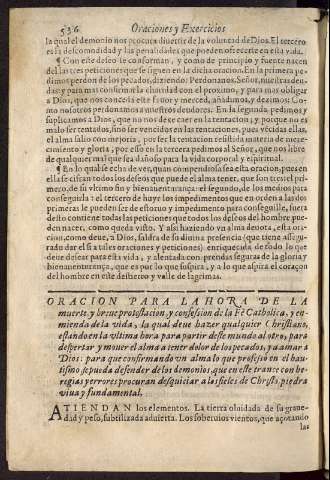 536 Oraciones y Exercicios
la qual el demonio nos procura diuertir de la voluntad de Dios. El tercero
es la descomodidad y las penalidades que pueden ofrecerte en esta vida.
¶ Con este deseo se conforman, y como de principio y fuente nacen
del las tres peticiones que se siguen en la dicha oracion. En la primera pe-
dimos perdon de los pecados, diziendo: Perdonanos, Señor, nuestras deu-
das: y para mas confirmar la charidad con el proximo, y para mas obligar
a Dios, que nos conceda este fauor y merced, añadimos, y dezimos: Co-
mo nosotros perdonamos a nuestros deudores. En la segunda pedimos y
suplicamos a Dios, que no nos dexe caer en la tentacion, y porque no es
malo ser tentados, sino ser vencidos en las tentaciones, pues vēcidas ellas,
el alma salio con mejoria, por ser la tentacion resistida materia de mere-
cimiento y gloria, por esso en la tercera pedimos al Señor, que nos libre
de qualquier mal que sea dañoso para la vida corporal y espiritual.
¶ En lo qual se echa de ver, quan compendiosa sea esta oracion, pues en
ella se cifran todos los deseos que puede el alma tener, que son tres: el pri-
mero, de su vltimo fin y bienauenturança: el segundo, de los medios para
conseguirla: el tercero de huyr los impedimentos que en orden a las dos
primeras le pueden ser de estoruo y impedimento para conseguille, fuera
desto contiene todas las peticiones que todos los deseos del hombre pue-
den nacer, como queda visto. Y assi haziendo vn alma deuota, esta ora-
cion, como deue, a Dios, saldra de su diuina presencia (que tiene assegu-
rado dar el si a tales oraciones y peticiones) enriquecida de todo lo que
deue desear para esta vida, y alentada con prendas seguras de la gloria y
bienauenturança, que es por lo que suspira, y a lo que aspira el coraçon
del hombre en este destierro y valle de lagrimas.
ORACION PARA LA HORA DE LA
muerte, y breue protestacion, y confession de la Fè Catholica, y en-
mienda de la vida, la qual deue hazer qualquier Christiano,
estando en la vltima hora para partir deste mundo al otro, para
despertar y mouer el alma a tener dolor de los pecados, y a amar a
Dios: para que confirmando vn alma lo que professò en el bau-
tismo, se pueda defender de los demonios, que en este trance con he-
regias y errores procuran desquiciar a las fieles de Christo, piedra
viua y fundamental.
ATIENDAN los elementos. La tierra oluidada de su graue-
dad y peso, subtilizada aduierta. Los soberuios vientos, que açotando
las